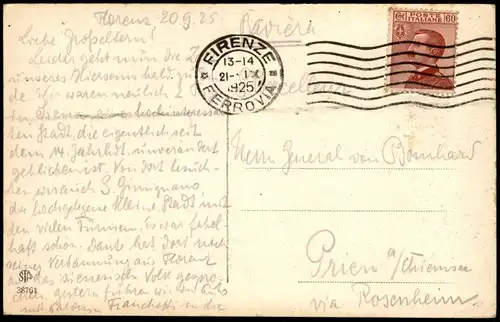 Florenz 20.9.25.
Liebe Großeltern!
Leider geht nun die Z
unseres Hierseins bald zu
de. Wir waren neulich 2
in Siena, eine hochinteressan
ten Stadt die eigentlich seit
dem 14. Jahrhdt. unverändert
geblieben ist. Von dort besuch-
ten wir auch S. Gimignano,
die hochgelegene kleine Stadt mit
den vielen Türmen. Es war fabel
haft schön. Dante hat dort nach
seiner Verbannung aus Florenz
an das Sienesische Volk gespro-
chen. gestern führen wir mit Auto
mit Baronin Franchetti in die
Baviera
FIRENZE
13-14
21. IX
1925
FERROVIA
POSTE ITALIANE
60
Herrn General von Bomhard
Prien a/Chiemsee
via Rosenheim
STA
38761